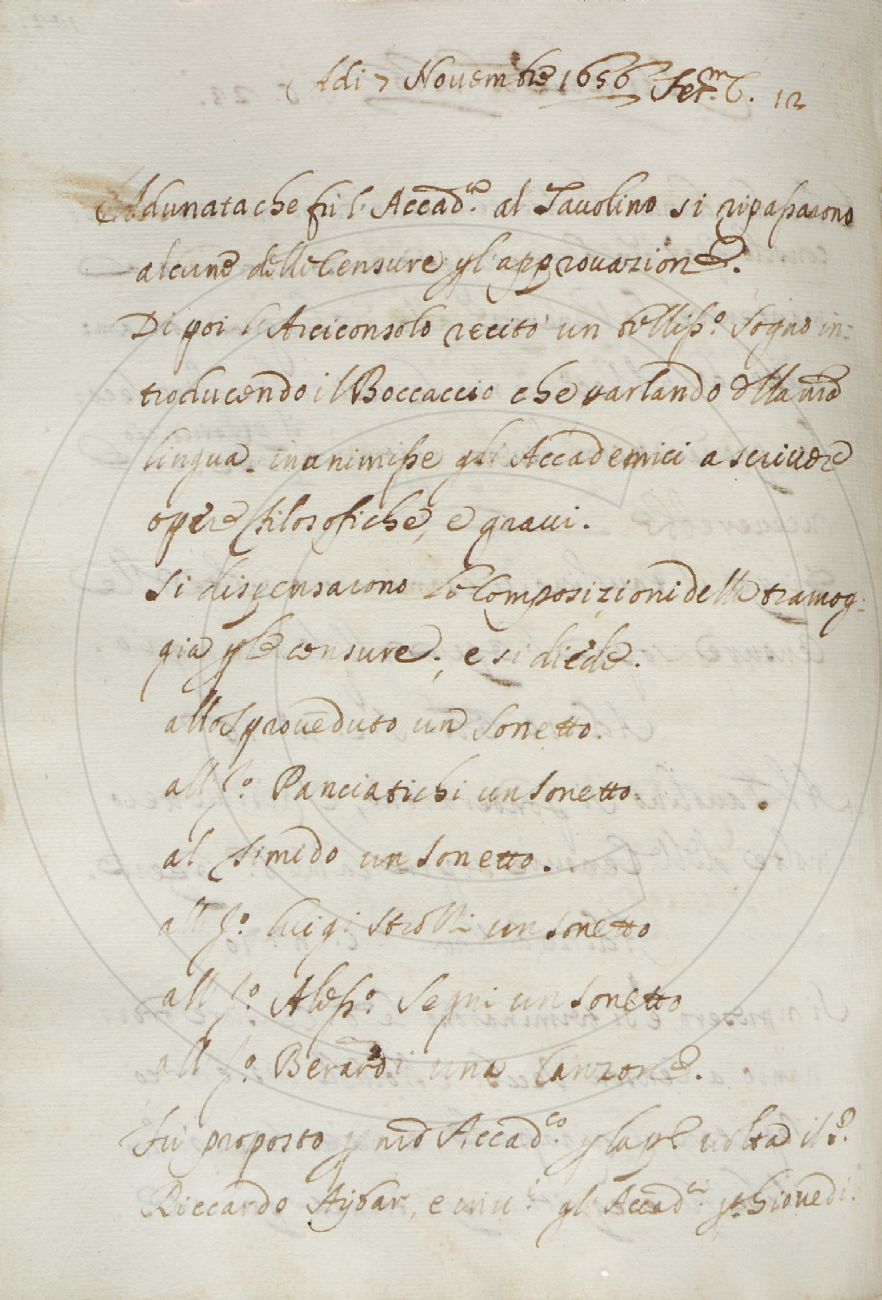 Adi 7 Novembre 1656 Set.m C. 12
Adunata che fù l'Accad.a al Tavolino si ripassarono
alcune delle Censure p l'approvazione.
Di poi l'Arciconsolo recitò un belliss.o sogno in-
troducendo il Boccaccio che parlando della nrã
lingua inanimisse gli Accademici a scrivere
opere filosofiche, e gravi.
Si dispensarono le Composizioni della tramog-
gia p le censure, e si diede.
allo Sproveduto un Sonetto.
all S.o Panciatichi un Sonetto.
al Simido un Sonetto.
all S.o Luigi Strozzi un Sonetto
all S.o Aless.o Segni un Sonetto
all S.o Berardi una Canzone.
Fù proposto p nrõ Accad.co p la p.a volta il S.e
Riccardo Aÿbar, e gl' Accad.ci p Giovedi.